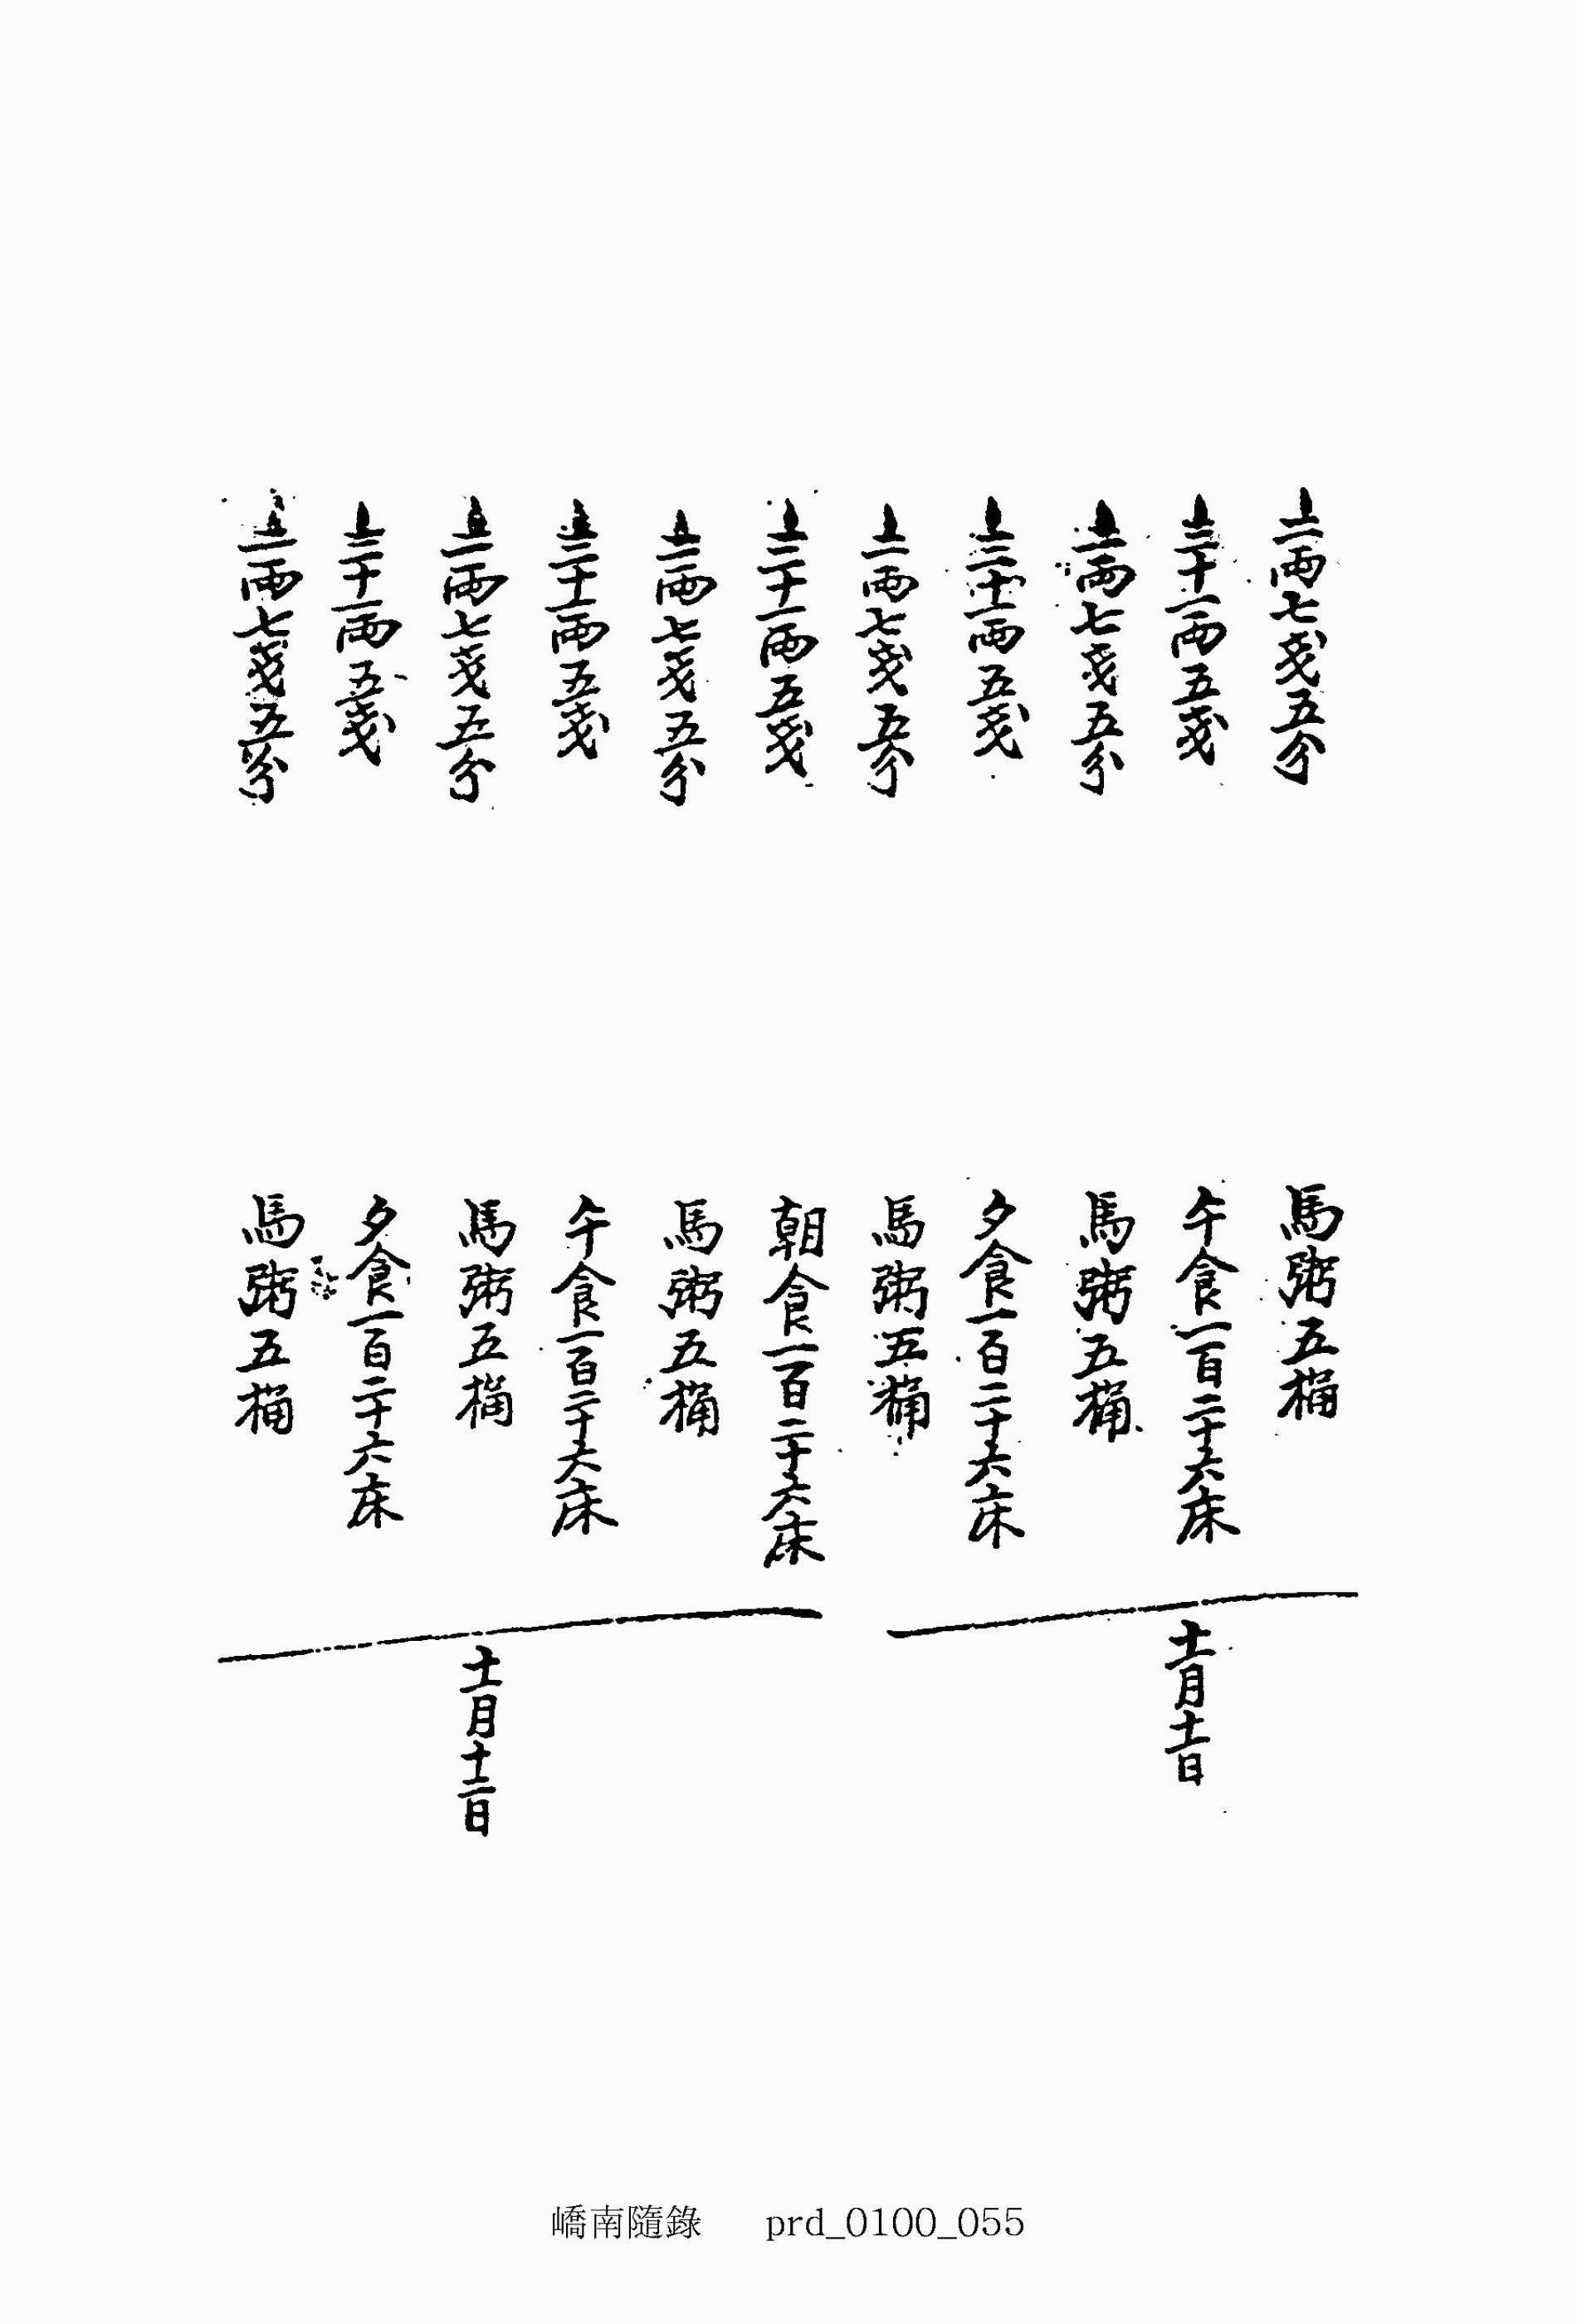 上一兩七戔五分
馬粥五桶
上三十一兩五戔
午食一百二十六床
上一兩七戔五分
馬粥五桶
上三十一兩五戔
夕食一百二十六床
上一兩七戔五分
馬粥五桶
十一月十一日
上三十一兩五戔
朝食一百二十六床
上一兩七戔五分
馬粥五桶
上三十一兩五戔
午食一百二十六床
上一兩七戔五分
馬粥五桶
上三十一兩五戔
夕食一百二十六床
上一兩七戔五分
馬粥五桶
十一月十二日
嶠南隨錄 prd_0100_055